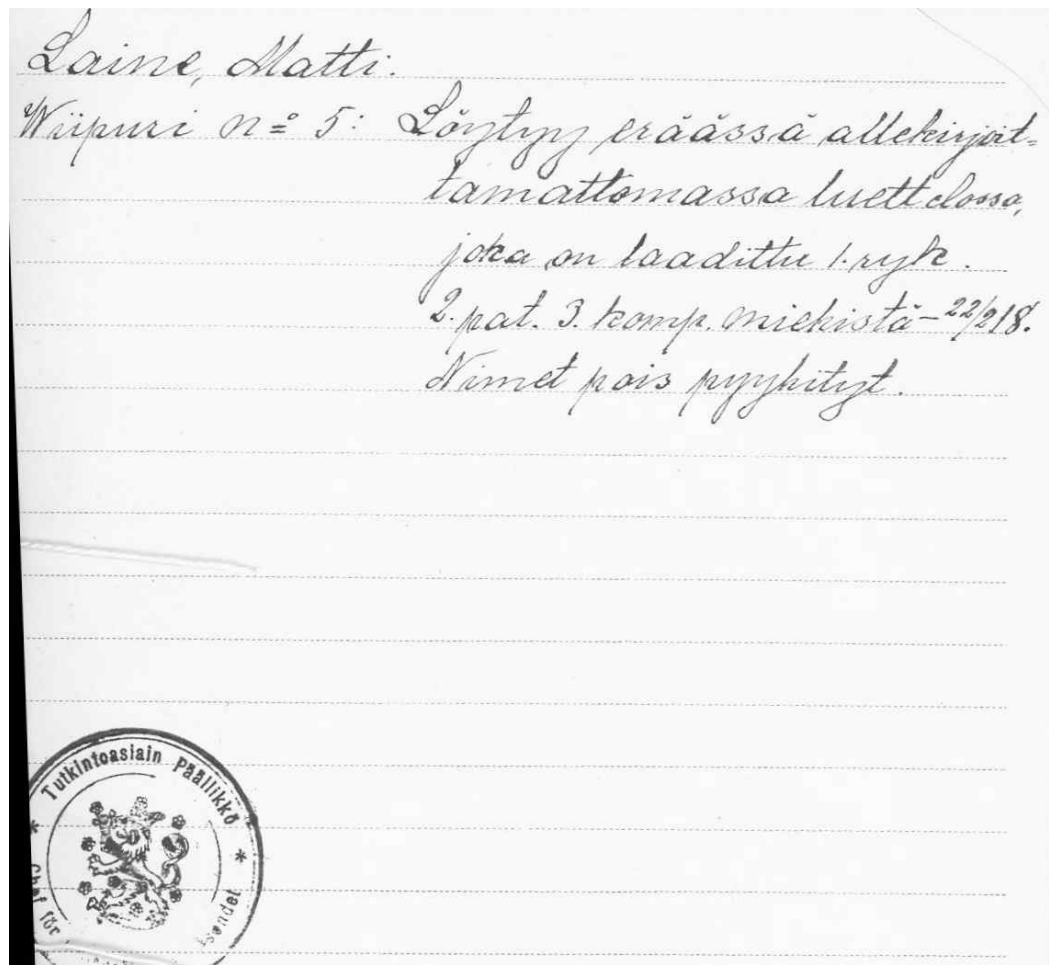 Laine, Matti.
Wiipuri nº 5: Löytyy eräässä allekirjoit-
tamattomassa luettelossa,
joka on laadittu 1. ryk.
2. pat. 3. komp. miehistä – 22/2 18.
Nimet pois pyyhityt.
* Tutkintoasiain Päällikkö *
Chef för